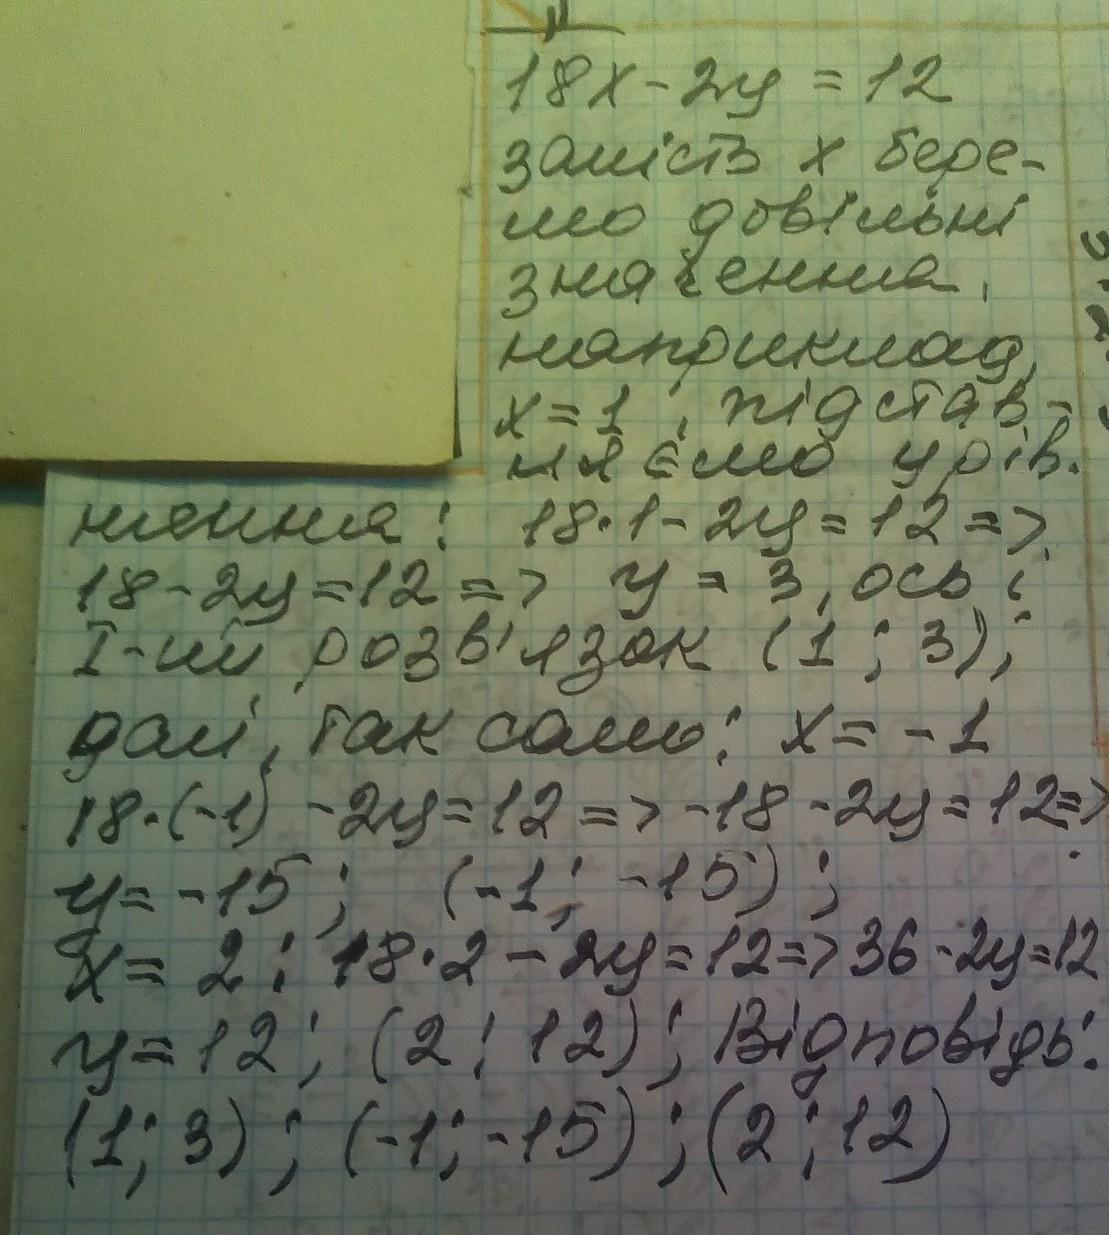 18x - 2y = 12
замість x бере-
мо довільні
значення,
наприклад,
x = 1 ; підстав-
ляємо у рів.
няння: 18·1 - 2y = 12 =>
18 - 2y = 12 => y = 3, ось і
I-ий розв'язок (1; 3);
далі, так само: x = -1
18·(-1) - 2y = 12 => -18 - 2y = 12 =>
y = -15 ; (-1; -15) ;
x = 2 ; 18·2 - 2y = 12 => 36 - 2y = 12
y = 12 ; (2; 12) ; Відповідь:
(1; 3) ; (-1; -15) ; (2; 12)